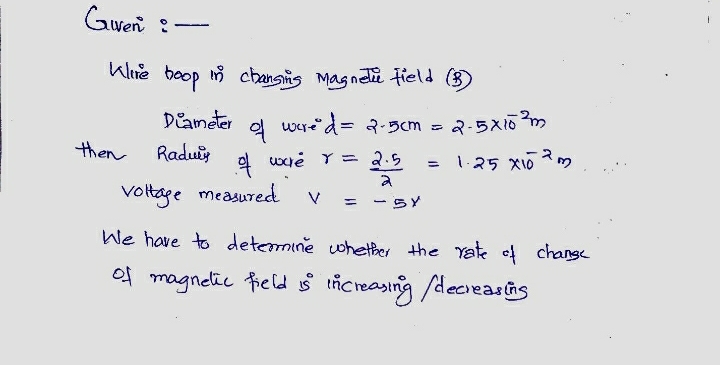 Given :—
Wire loop in changing Magnetic field (B)
Diameter of wire d = 2.5cm = 2.5×10⁻²m
then Radius of wire r = 2.5/2 = 1.25 ×10⁻² m
voltage measured V = -5V
We have to determine whether the rate of change
of magnetic field is increasing/decreasing